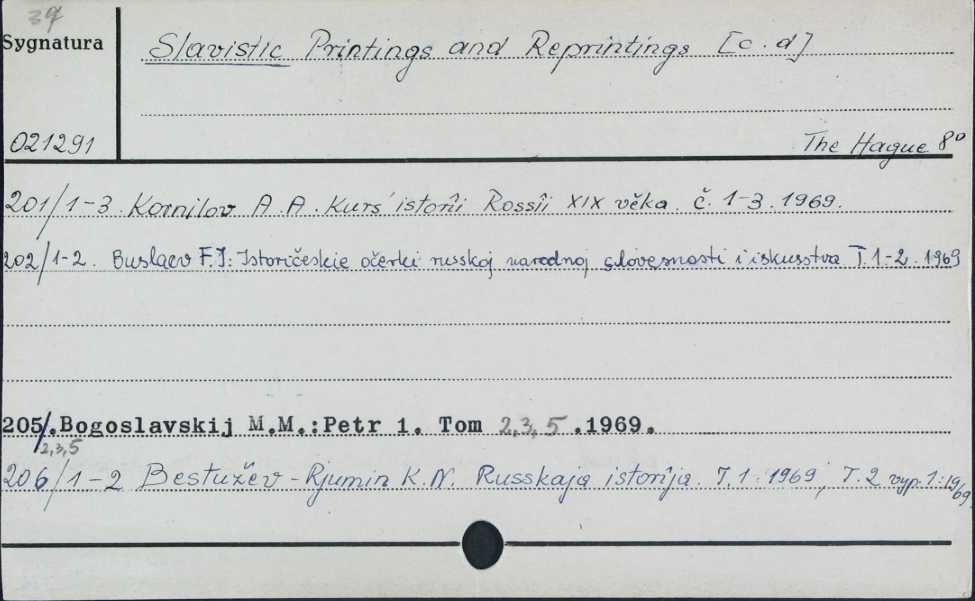 39
Sygnatura
Slavistic Printings and Reprintings [c.d]
021291
The Hague 8⁰
201/1-3. Kornilov A.A. Kurs istorîi Rossîi XIX věka. č. 1-3. 1969.
202/1-2. Buslaev F.I: Istoričeskie očerki russkoj narodnoj slovesnosti i iskusstva T. 1-2. 1969
205/.Bogoslavskij M.M.:Petr 1. Tom 2,3,5 .1969.
2,3,5
206/1-2 Bestužev-Rjumin K.N. Russkaja istorîja. T.1. 1969, T.2 vyp. 1: 19/69.